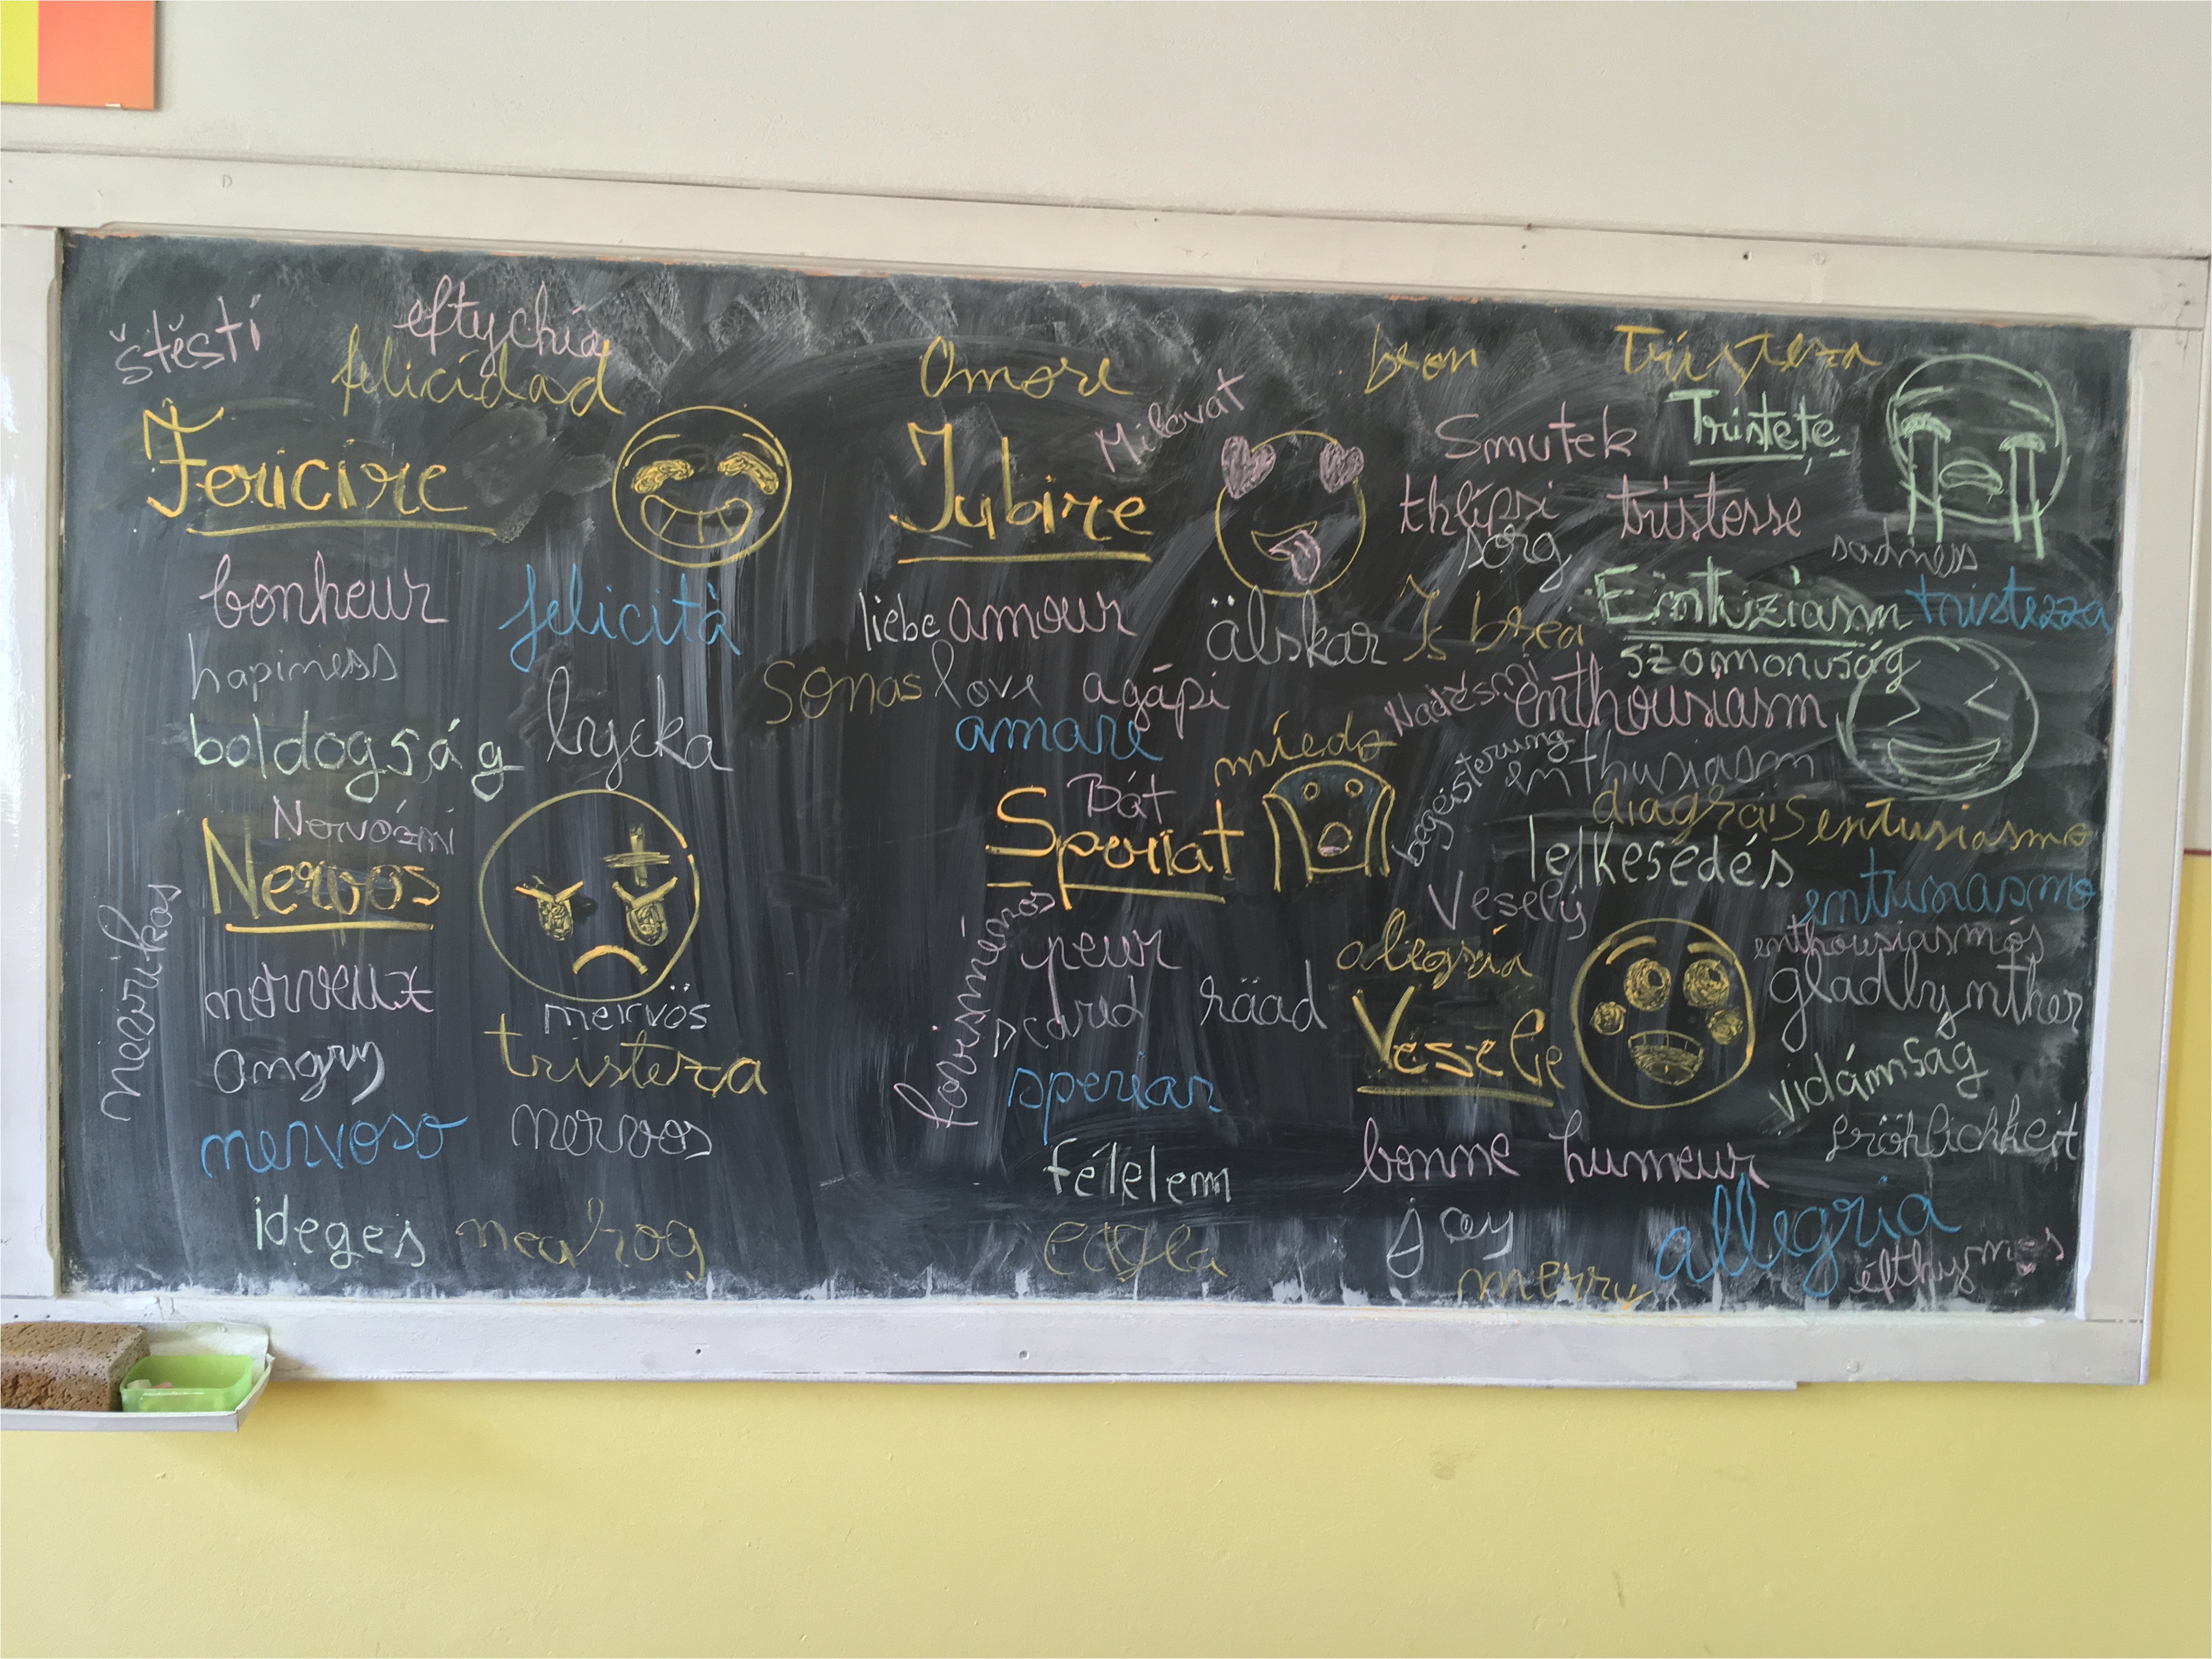 štěstí
eftychía
felicidad
Fericire
bonheur
felicità
hapiness
boldogság
lycka
Nervózní
Nervos
nevrikos
nerveux
nervös
angry
tristeza
nervoso
nervos
ideges
nearbog
Amore
Milovat
Iubire
liebe amour
älskar
sonas love agápi
amare
miedo
Bát
Speriat
fovisménos
peur
scared
räad
speriar
félelem
eagla
bron
Tristeza
Smutek
Tristețe
thlípsi
tristesse
sorg
sadness
Is brea
Entuziasm
tristezza
szomorúság
Nadšení
enthousiasm
begeisterung
enthusiasm
díograis
entusiasmo
lelkesedés
entusiasmo
Veselý
enthousiasmós
alegría
Veselie
vidámság
fröhlichkeit
bonne humeur
joy
allegria
merry
éfthymos